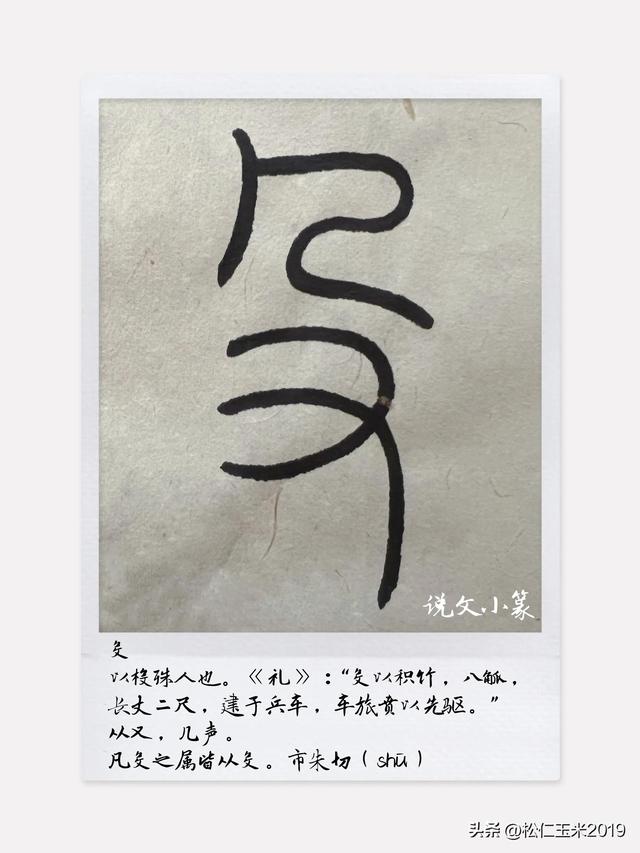 殳
说文小篆
殳
以杸殊人也。《礼》：“殳以积竹，八觚，
长丈二尺，建于兵车，车旅贲以先驱。”
从又，几声。
凡殳之属皆从殳。市朱切（shū）
头条 @松仁玉米2019